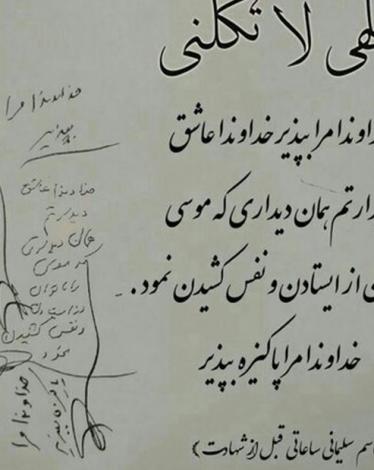 هی لا تکلنی
داوندا مرا بپذیر خداوندا عاشق
دارتم همان دیداری که موسی
ی از ایستادن و نفس کشیدن نمود.
خداوندا مرا پاکیزه بپذیر
اسم سلیمانی ساعاتی قبل از شهادت)
خداوندا مرا
بپذیر
خداوندا عاشق
دیدارتم
همان دیداری
که موسی
را ناتوان
از ایستادن
و نفس کشیدن
نمود
خداوندا مرا
پاکیزه بپذیر